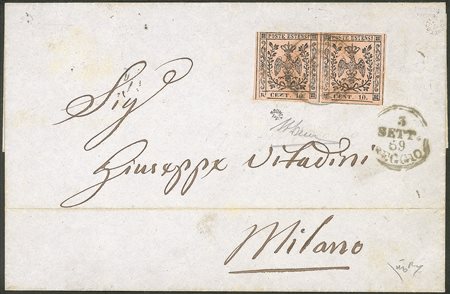 POSTE ESTENSI POSTE ESTENSI
CENT. 10. CENT. 10.
Sig
Giuseppe Vitadini
Milano
3
SETT.
59
REGGIO